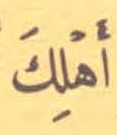 أَهْلِكَ